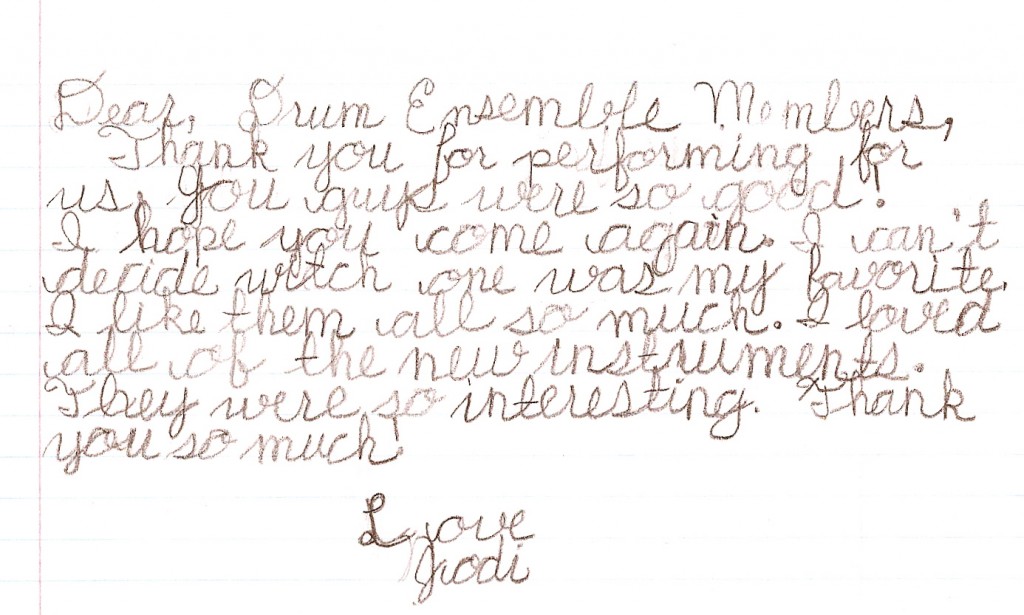 Dear, Drum Ensemble Members,
Thank you for performing for
us. You guys were so good!
I hope you come again. I can't
decide witch one was my favorite.
I like them all so much. I loved
all of the new instruments.
They were so interesting. Thank
you so much!
Love
Jodi